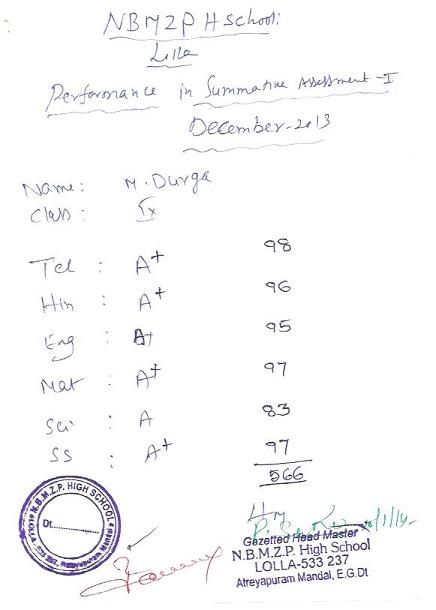 NBMZP H School:
Lolla
Performance in Summative Assessment-I
December-2013
Name: M. Durga
Class: IX
Tel : A+ 98
Hin : A+ 96
Eng : A+ 95
Mat : A+ 97
Sci : A 83
SS : A+ 97
566
HM
Gazetted Head Master
N.B.M.Z.P. High School
LOLLA-533 237
Atreyapuram Mandal, E.G.Dt
N.B.M.Z.P. HIGH SCHOOL
Dt...............
LOLLA-533 237, Atreyapuram Mandal